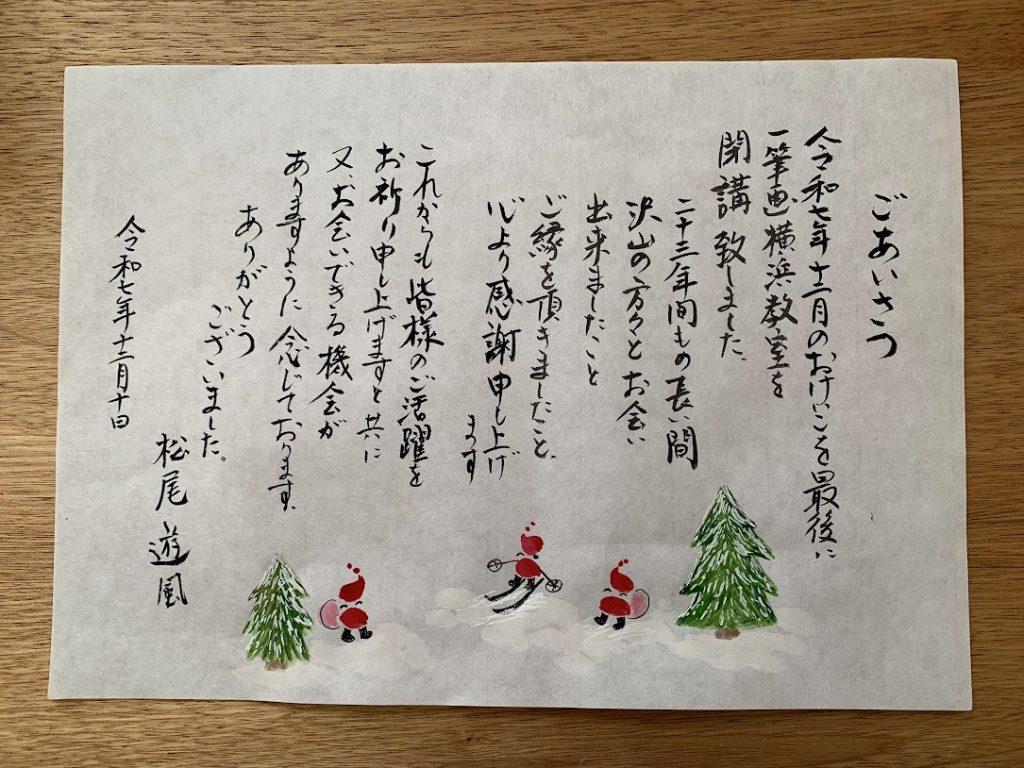 ごあいさつ
令和七年十二月のおけいこを最後に
一筆画横浜教室を
閉講致しました。
二十三年間もの長い間
沢山の方々とお会い
出来ましたこと
ご縁を頂きましたこと、
心より感謝申し上げ
ます
これからも皆様のご活躍を
お祈り申し上げますと共に
又、お会いできる機会が
ありますように念じております。
ありがとう
ございました。
令和七年十二月十日
松尾遊風